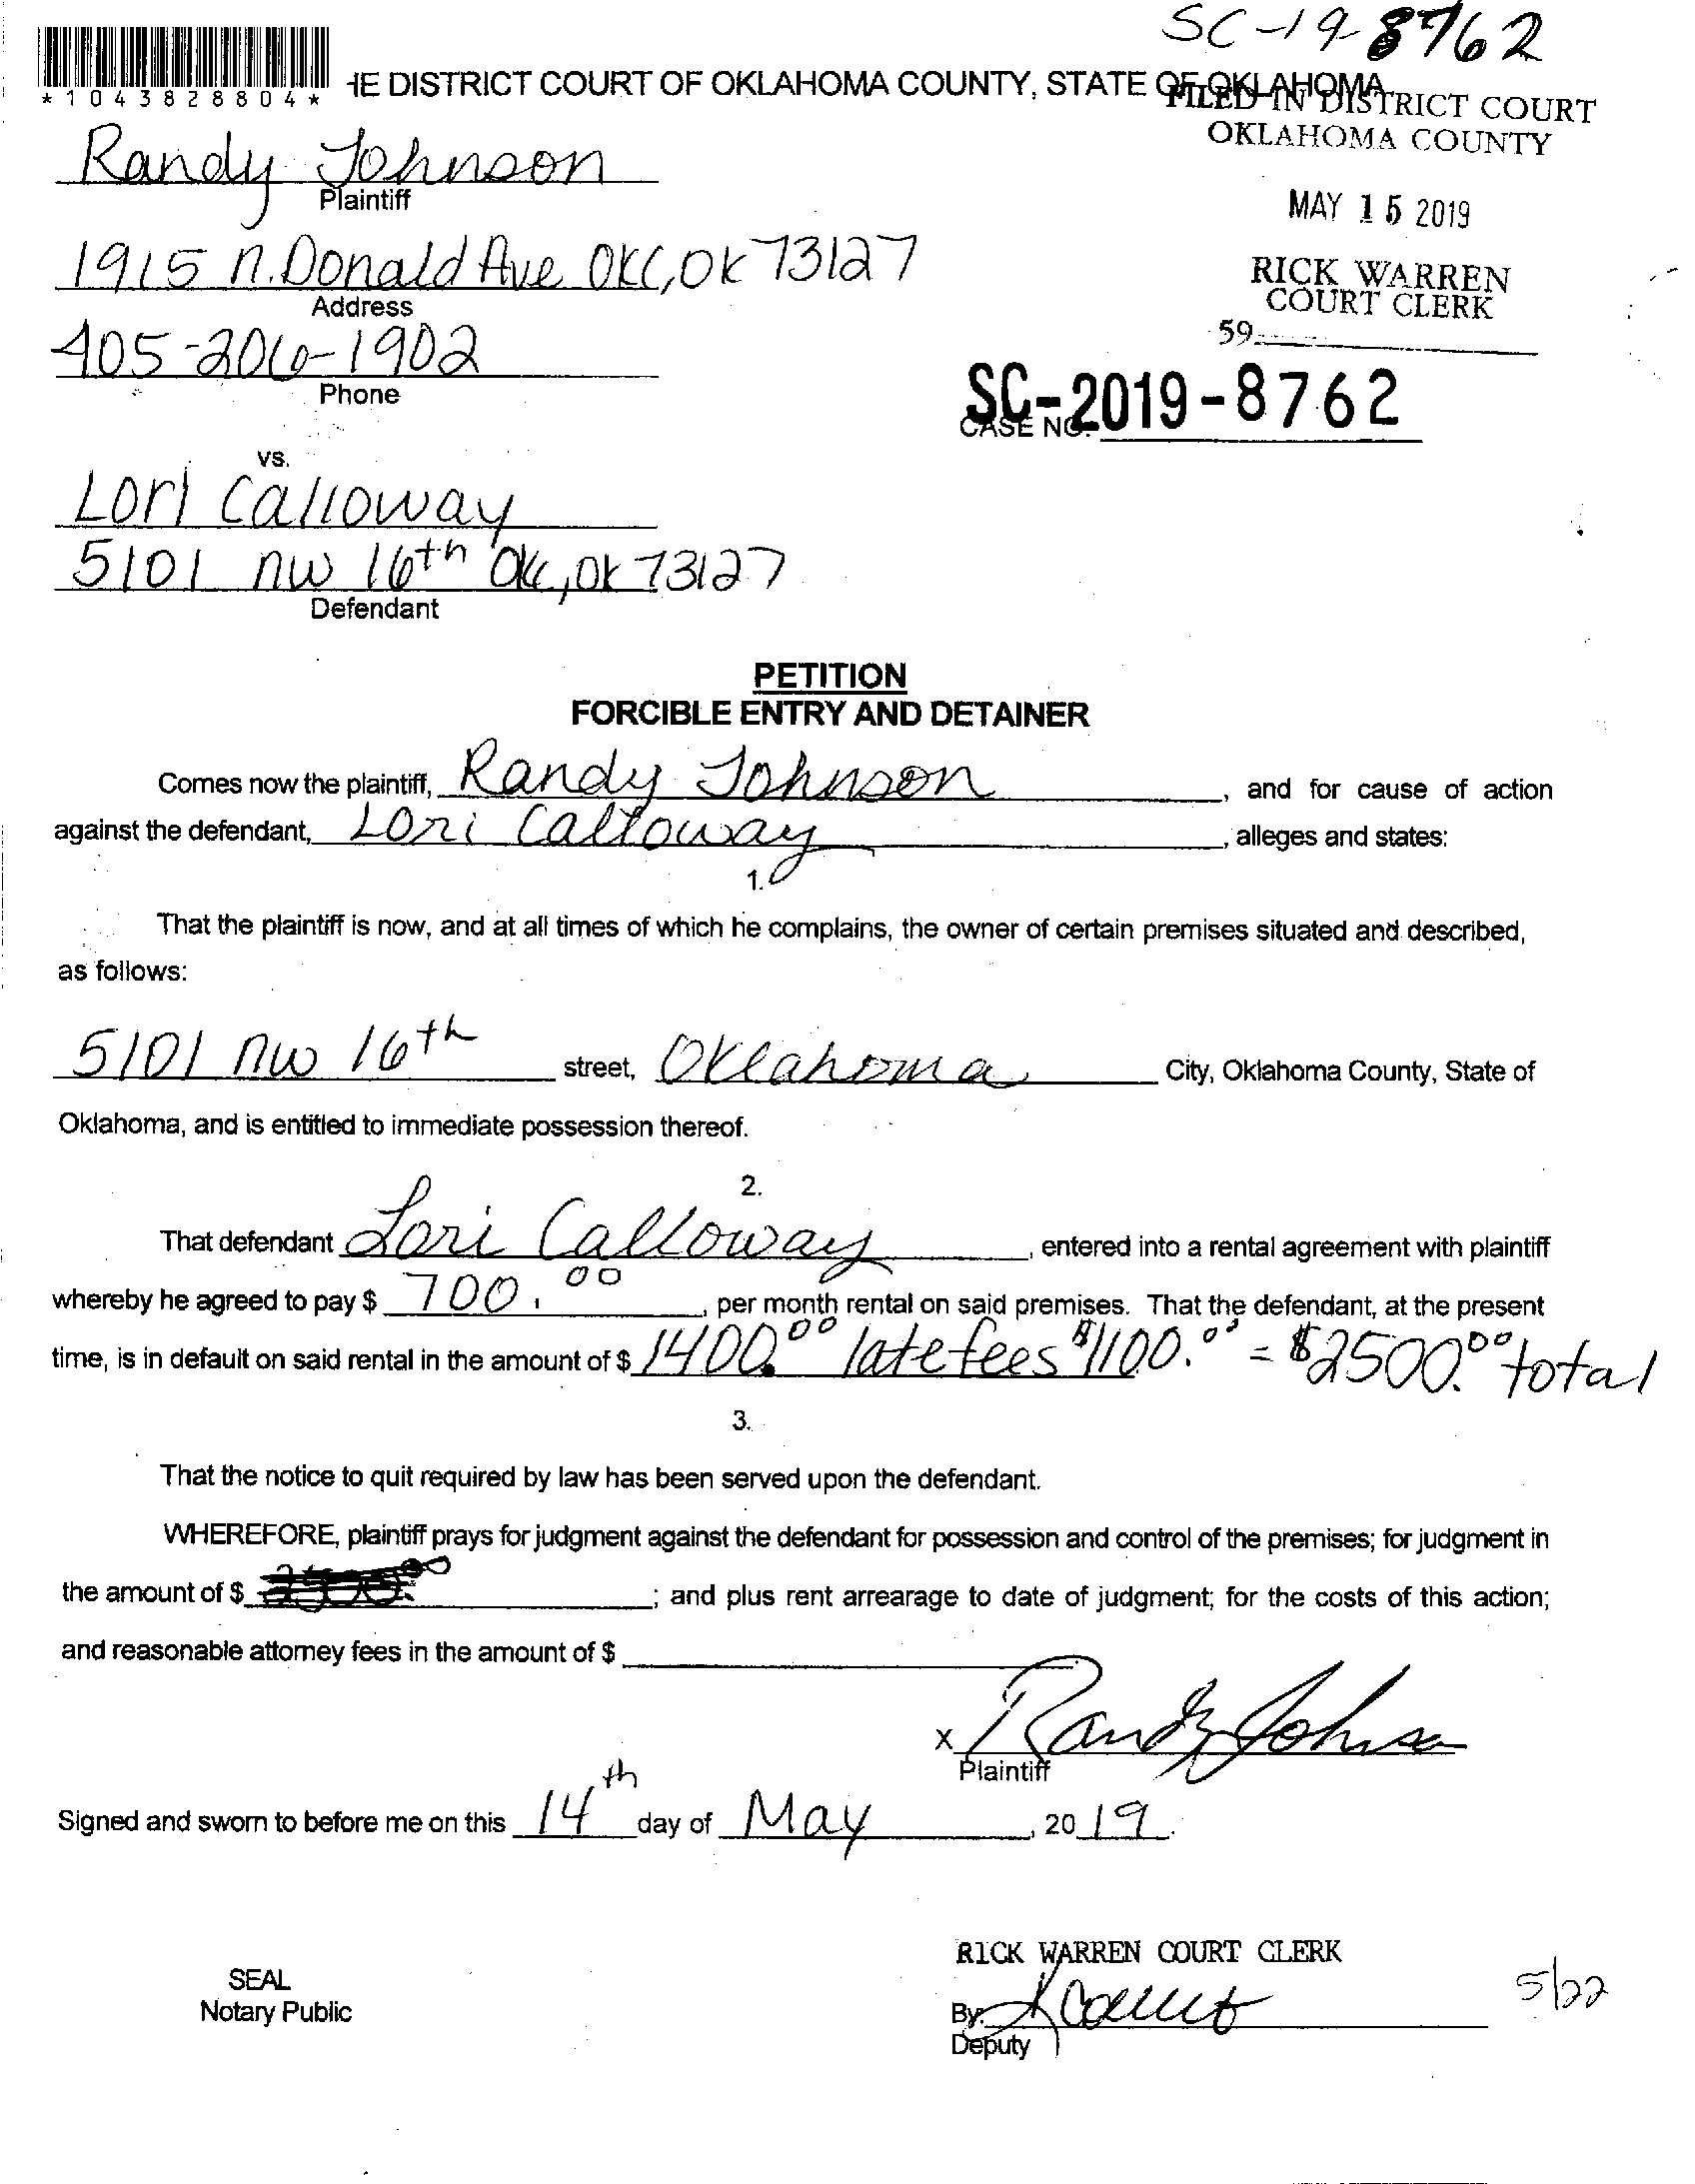 SC-19-8762
*1043828804*
HE DISTRICT COURT OF OKLAHOMA COUNTY, STATE OF OKLAHOMA
FILED IN DISTRICT COURT
OKLAHOMA COUNTY
Randy Johnson
Plaintiff
MAY 15 2019
1915 N. Donald Ave OKC, OK 73127
Address
RICK WARREN
COURT CLERK
59
405-206-1902
Phone
SC-2019-8762
CASE NO.
vs.
Lori Calloway
5101 NW 16th OKC, OK 73127
Defendant
PETITION
FORCIBLE ENTRY AND DETAINER
Comes now the plaintiff, Randy Johnson, and for cause of action
against the defendant, Lori Calloway, alleges and states:
1.
That the plaintiff is now, and at all times of which he complains, the owner of certain premises situated and described,
as follows:
5101 NW 16th street, Oklahoma City, Oklahoma County, State of
Oklahoma, and is entitled to immediate possession thereof.
2.
That defendant Lori Calloway, entered into a rental agreement with plaintiff
whereby he agreed to pay $ 700.00, per month rental on said premises. That the defendant, at the present
time, is in default on said rental in the amount of $ 1400.00 late fees $1100.00 = $2500.00 total
3.
That the notice to quit required by law has been served upon the defendant.
WHEREFORE, plaintiff prays for judgment against the defendant for possession and control of the premises; for judgment in
the amount of $ ; and plus rent arrearage to date of judgment; for the costs of this action;
and reasonable attorney fees in the amount of $
X Randy Johnson
Plaintiff
Signed and sworn to before me on this 14th day of May, 2019.
RICK WARREN COURT CLERK
SEAL
Notary Public
5/22
By:
Deputy